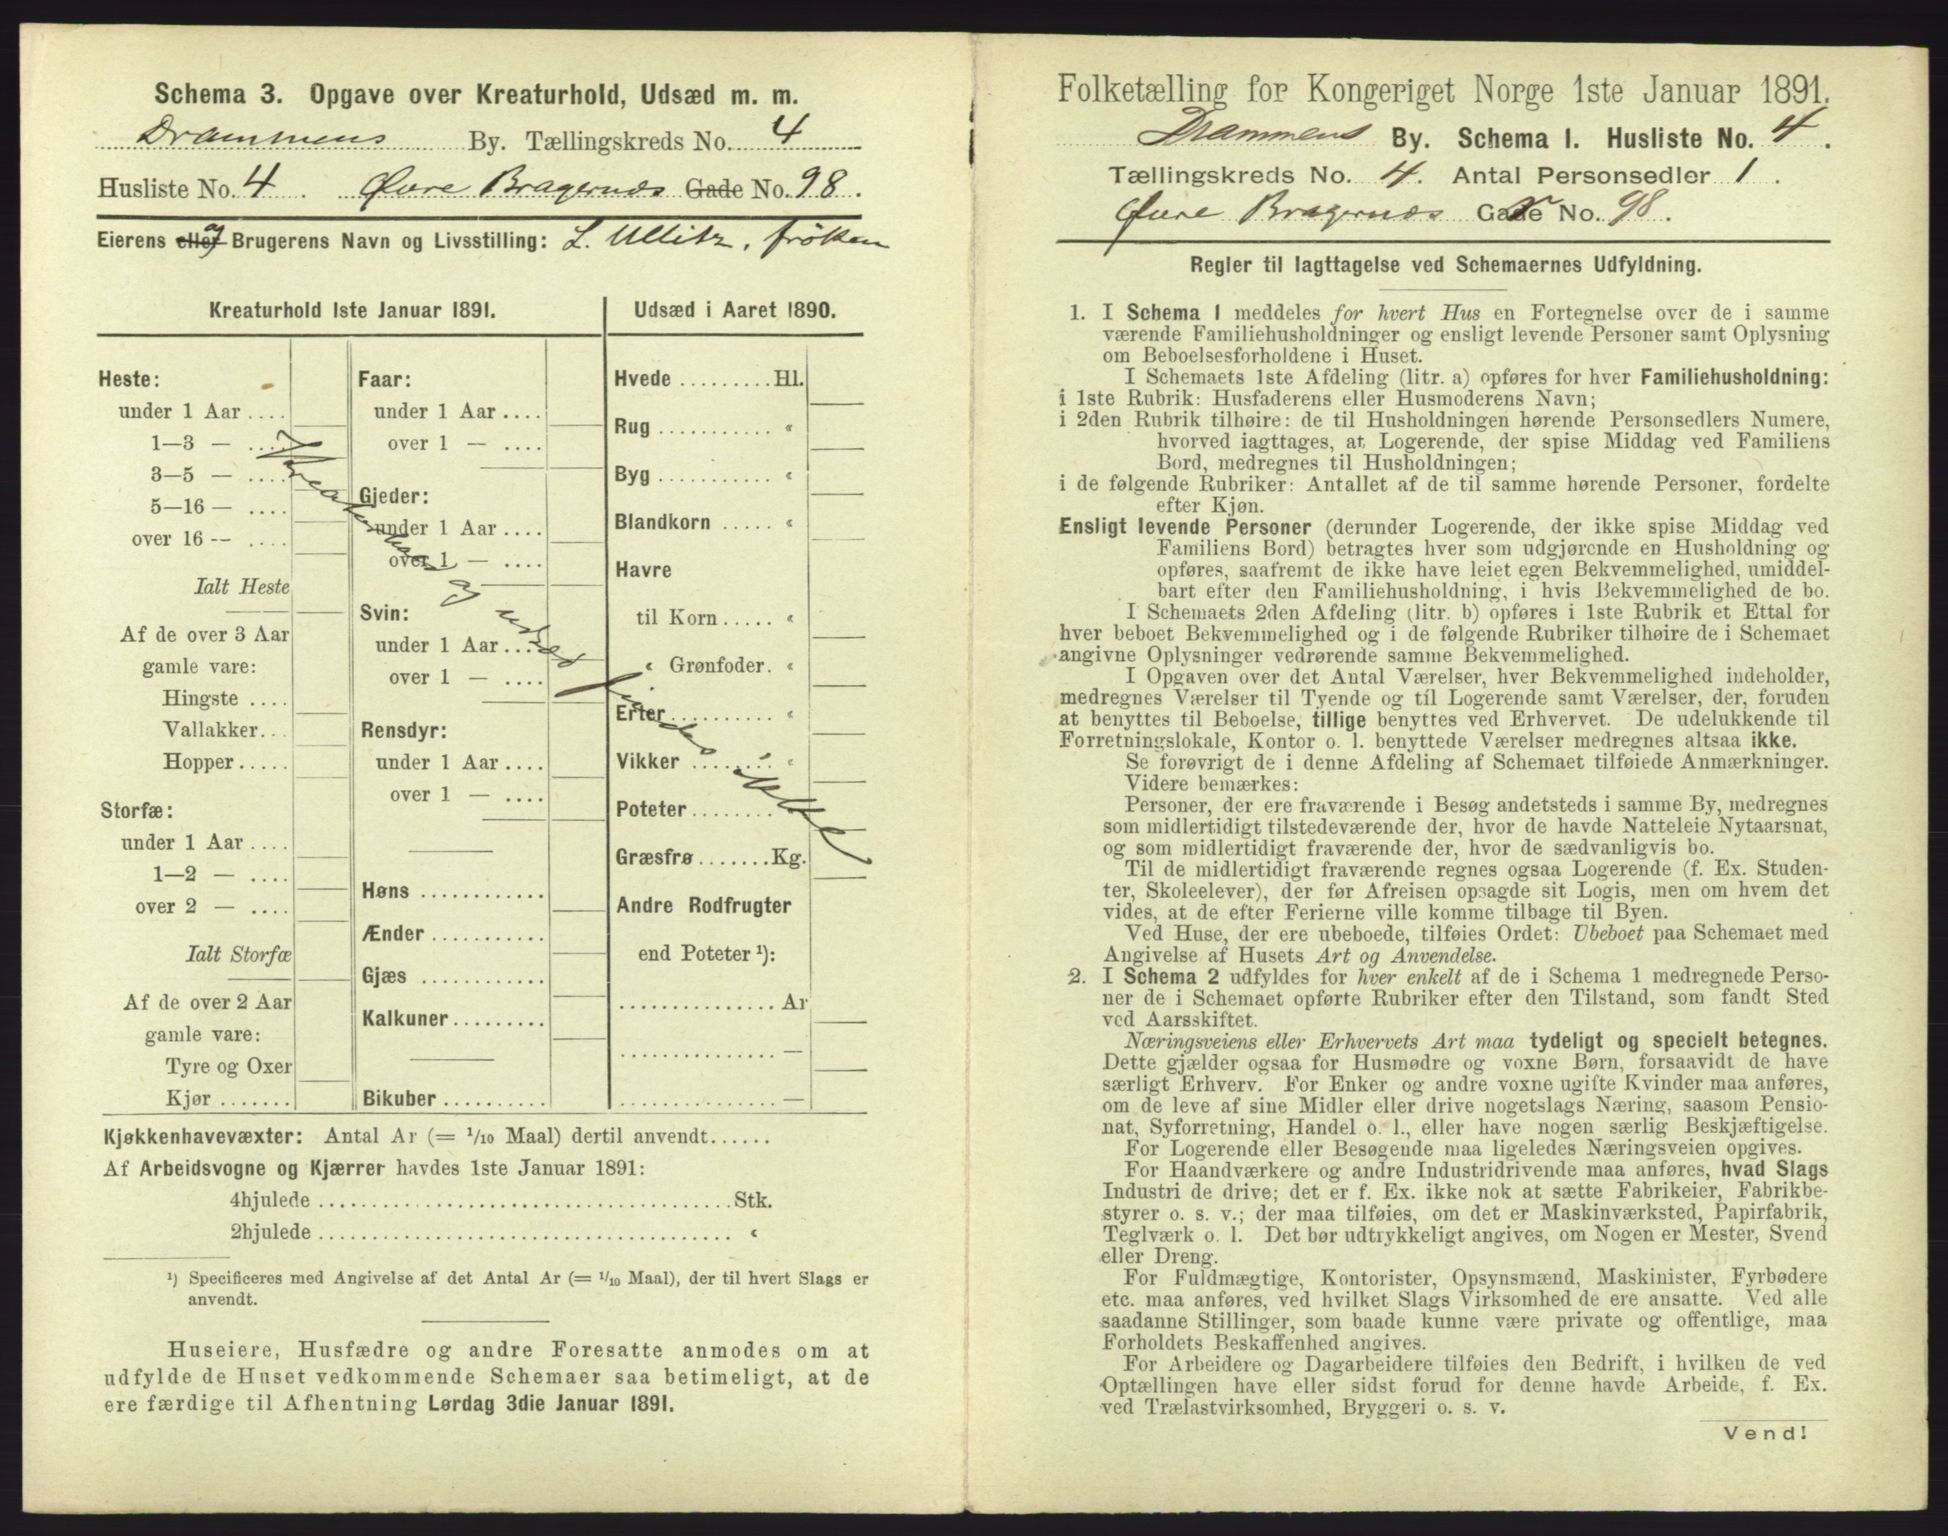 Schema 3. Opgave over Kreaturhold, Udsæd m. m.
Drammens By. Tællingskreds No. 4
Husliste No. 4 Øvre Bragernæs Gade No. 98.
Eierens eller og Brugerens Navn og Livsstilling: L. Ullitz, fröken
Kreaturhold 1ste Januar 1891.
Heste:
under 1 Aar ....
1—3 — ....
3—5 — ....
5—16 — ....
over 16 -- ....
Ialt Heste
Af de over 3 Aar
gamle vare:
Hingste ....
Vallakker...
Hopper.....
Storfæ:
under 1 Aar ....
1—2 — ....
over 2 — ....
Ialt Storfæ
Af de over 2 Aar
gamle vare:
Tyre og Oxer
Kjør .......
Faar:
under 1 Aar ....
over 1 — ....
Gjeder:
under 1 Aar ....
over 1 — ....
Svin:
under 1 Aar ....
over 1 — ....
Rensdyr:
under 1 Aar ....
over 1 — ....
Høns ............
Ænder ...........
Gjæs ............
Kalkuner.........
Bikuber ..........
Udsæd i Aaret 1890.
Hvede .........Hl.
Rug ........... «
Byg ........... «
Blandkorn ..... «
Havre
til Korn ..... «
« Grønfoder. «
Erter.......... «
Vikker ........ «
Poteter........
Græsfrø .......Kg.
Andre Rodfrugter
end Poteter ¹):
............... Ar
............... —
............... —
Kreaturhold og udsæd findes ikke!
Kjøkkenhavevæxter: Antal Ar (= 1/10 Maal) dertil anvendt......
Af Arbeidsvogne og Kjærrer havdes 1ste Januar 1891:
4hjulede ....................................... Stk.
2hjulede ....................................... «
¹) Specificeres med Angivelse af det Antal Ar (= 1/10 Maal), der til hvert Slags er
anvendt.
Huseiere, Husfædre og andre Foresatte anmodes om at
udfylde de Huset vedkommende Schemaer saa betimeligt, at de
ere færdige til Afhentning Lørdag 3die Januar 1891.
Folketælling for Kongeriget Norge 1ste Januar 1891.
Drammens By. Schema I. Husliste No. 4.
Tællingskreds No. 4. Antal Personsedler 1.
Øvre Bragernæs Gade No. 98.
Regler til Iagttagelse ved Schemaernes Udfyldning.
1. I Schema 1 meddeles for hvert Hus en Fortegnelse over de i samme
værende Familiehusholdninger og ensligt levende Personer samt Oplysning
om Beboelsesforholdene i Huset.
I Schemaets 1ste Afdeling (litr. a) opføres for hver Familiehusholdning:
i 1ste Rubrik: Husfaderens eller Husmoderens Navn;
i 2den Rubrik tilhøire: de til Husholdningen hørende Personsedlers Numere,
hvorved iagttages, at Logerende, der spise Middag ved Familiens
Bord, medregnes til Husholdningen;
i de følgende Rubriker: Antallet af de til samme hørende Personer, fordelte
efter Kjøn.
Ensligt levende Personer (derunder Logerende, der ikke spise Middag ved
Familiens Bord) betragtes hver som udgjørende en Husholdning og
opføres, saafremt de ikke have leiet egen Bekvemmelighed, umiddel-
bart efter den Familiehusholdning, i hvis Bekvemmelighed de bo.
I Schemaets 2den Afdeling (litr. b) opføres i 1ste Rubrik et Ettal for
hver beboet Bekvemmelighed og i de følgende Rubriker tilhøire de i Schemaet
angivne Oplysninger vedrørende samme Bekvemmelighed.
I Opgaven over det Antal Værelser, hver Bekvemmelighed indeholder,
medregnes Værelser til Tyende og til Logerende samt Værelser, der, foruden
at benyttes til Beboelse, tillige benyttes ved Erhvervet. De udelukkende til
Forretningslokale, Kontor o. l. benyttede Værelser medregnes altsaa ikke.
Se forøvrigt de i denne Afdeling af Schemaet tilføiede Anmærkninger.
Videre bemærkes:
Personer, der ere fraværende i Besøg andetsteds i samme By, medregnes
som midlertidigt tilstedeværende der, hvor de havde Natteleie Nytaarsnat,
og som midlertidigt fraværende der, hvor de sædvanligvis bo.
Til de midlertidigt fraværende regnes ogsaa Logerende (f. Ex. Studen-
ter, Skoleelever), der før Afreisen opsagde sit Logis, men om hvem det
vides, at de efter Ferierne ville komme tilbage til Byen.
Ved Huse, der ere ubeboede, tilføies Ordet: Ubeboet paa Schemaet med
Angivelse af Husets Art og Anvendelse.
2. I Schema 2 udfyldes for hver enkelt af de i Schema 1 medregnede Perso-
ner de i Schemaet opførte Rubriker efter den Tilstand, som fandt Sted
ved Aarsskiftet.
Næringsveiens eller Erhvervets Art maa tydeligt og specielt betegnes.
Dette gjælder ogsaa for Husmødre og voxne Børn, forsaavidt de have
særligt Erhverv. For Enker og andre voxne ugifte Kvinder maa anføres,
om de leve af sine Midler eller drive nogetslags Næring, saasom Pensio-
nat, Syforretning, Handel o. l., eller have nogen særlig Beskjæftigelse.
For Logerende eller Besøgende maa ligeledes Næringsveien opgives.
For Haandværkere og andre Industridrivende maa anføres, hvad Slags
Industri de drive; det er f. Ex. ikke nok at sætte Fabrikeier, Fabrikbe-
styrer o. s. v.; der maa tilføies, om det er Maskinværksted, Papirfabrik,
Teglværk o. l. Det bør udtrykkeligt angives, om Nogen er Mester, Svend
eller Dreng.
For Fuldmægtige, Kontorister, Opsynsmænd, Maskinister, Fyrbødere
etc. maa anføres, ved hvilket Slags Virksomhed de ere ansatte. Ved alle
saadanne Stillinger, som baade kunne være private og offentlige, maa
Forholdets Beskaffenhed angives.
For Arbeidere og Dagarbeidere tilføies den Bedrift, i hvilken de ved
Optællingen have eller sidst forud for denne havde Arbeide, f. Ex.
ved Trælastvirksomhed, Bryggeri o. s. v.
Vend!